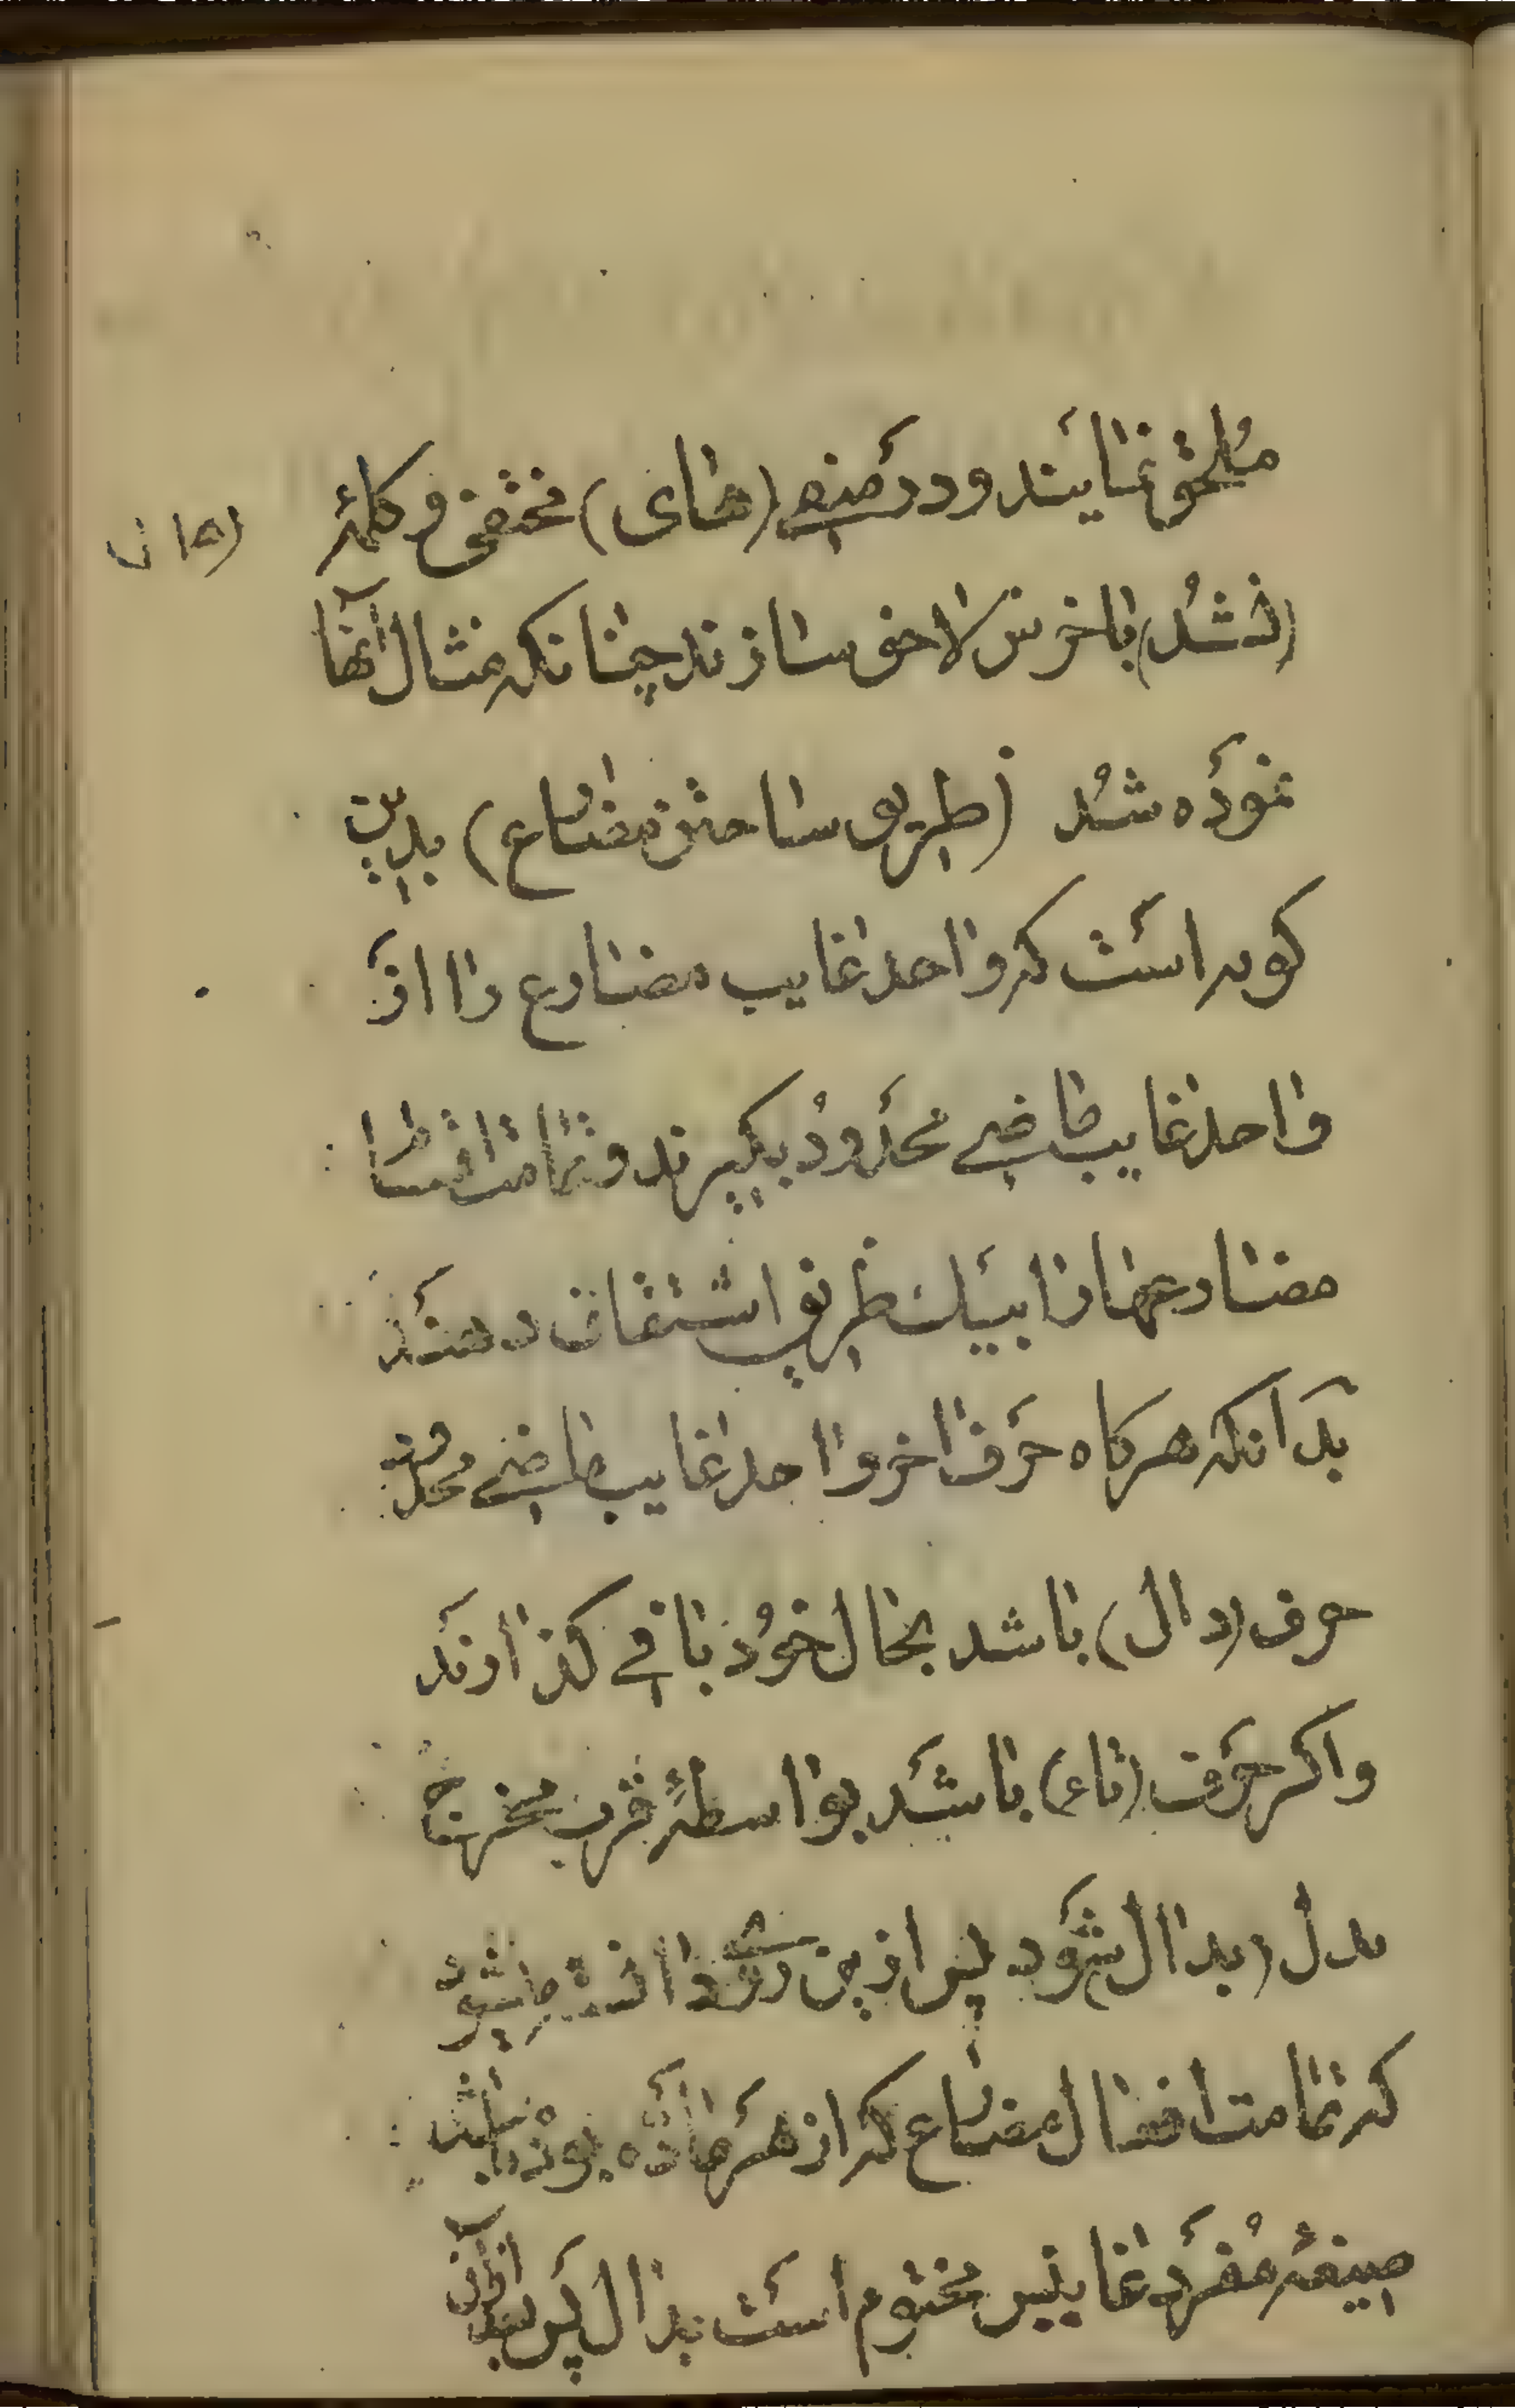 ملحق نمایند و در منفی (های) مختفی و کلمهٔ
(نشد) باخرش لاحق سازند چنانکه مثال آنها
نموده شد (طریق ساختن مضارع) بدین
کونه است که واحد غایب مضارع را از
واحد غایب ماضی محدود بکیرند و تمامت
مضارعها را بیک طریق اشتقاق دهند
بدانکه هرکاه حرف اخر واحد غایب ماضی محدود
حرف (دال) باشد بحال خود باقی کذارند
و اکر حرف (تاء) باشد بواسطهٔ قرب مخرج
بدل (بدال) شود پس ازین رو دانسته میشود
که تمامت افعال مضارع که از هر ماده بوده باشد
صیغهٔ مفرد غایبش مختوم است بدال پس